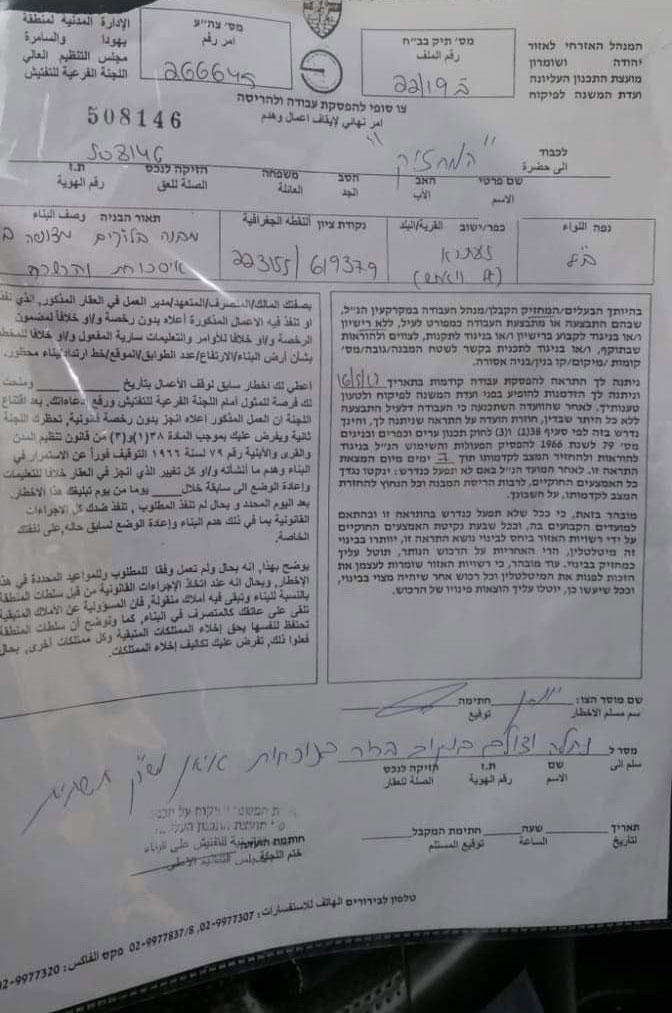 המנהל האזרחי לאזור
יהודה ושומרון
מועצת התכנון העליונה
ועדת המשנה לפיקוח
מס׳ תיק בב״ח
رقم الملف
ב 22/19
מס׳ צה״ע
امر رقم
266645
الإدارة المدنية لمنطقة
يهودا والسامرة
مجلس التنظيم العالي
اللجنة الفرعية للتفتيش
צו סופי להפסקת עבודה ולהריסה
امر نهائي لإيقاف اعمال وهدم
508146
לכבוד
الى حضرة
"המחזיק"
508146
שם פרטי האב הסב משפחה הזיקה לנכס ת.ז
الاسم الأب الجد العائلة الصلة للعق رقم الهوية
נפה اللواء
כפר/ישוב القرية/البلد
נקודת ציון النقطة الجغرافية
תאור הבניה وصف البناء
ב״ל
זעתרא
223155/619379
מבנה בלוקים מצופה ב
איסכורית
בהיותך הבעלים/המחזיק הקבלן/מנהל העבודה במקרקעין הנ״ל,
שבהם התבצעה או מתבצעת העבודה כמפורט לעיל, ללא רישיון
ו/או בניגוד לקבוע ברישיון ו/או בניגוד לתקנות, לצווים ולהוראות
שבתוקף, ו/או בניגוד לתכנית בקשר לשטח המבנה/גובה/מס׳
קומות /מיקום/קו בנין/בניה אסורה.
ניתנה לך התראה להפסקת עבודה קודמות בתאריך
וניתנה לך הזדמנות להופיע בפני ועדת המשנה לפיקוח ולטעון
טענותיך. לאחר שהוועדה השתכנעה כי העבודה דלעיל התבצעה
ללא כל היתר שבדין, חוזרת הועדה על התראה שניתנה לך, והינך
נדרש בזה לפי סעיף 38(1) ו(3) לחוק תכנון ערים וכפרים ובנינים
מס׳ 79 לשנת 1966 להפסיק הפעולות והשימוש הנ״ל בניגוד
להוראות ולהחזיר המצב לקדמותו תוך 7 ימים מיום המצאת
התראה זו. לאחר המועד הנ״ל באם לא תפעל כנדרש: ינקטו נגדך
כל האמצעים החוקיים, לרבות הריסת המבנה וכל הנחוץ להחזרת
המצב לקדמותו, על חשבונך.
מובהר בזאת, כי ככל שלא תפעל כנדרש בהתראה זו ובהתאם
למועדים הקבועים בה, וככל שבעת נקיטת האמצעים החוקיים
על ידי רשויות האזור ביחס לבינוי נושא התראה זו, יוותרו בבינוי
זה מיטלטלין, הרי האחריות על הרכוש הנותר, תוטל עליך
כמחזיק בבינוי. עוד מובהר, כי רשויות האזור שומרות לעצמן את
הזכות לפנות את המיטלטלין וכל רכוש אחר שיהיה מצוי בבינוי,
וככל שיעשו כן, יוטלו עליך הוצאות פינויו של הרכוש.
بصفتك المالك/المتصرف/المتعهد/مدير العمل في العقار المذكور, الذي
او تنفذ فيه الاعمال المذكورة أعلاه بدون رخصة و/او خلافا لمضمون
الرخصة و/او خلافا للأوامر والتعليمات سارية المفعول و/او خلافا
بشأن أرض البناء/الارتفاع/عدد الطوابق/الموقع/خط ارتداد/بناء محظور.
اعطي لك اخطار سابق لوقف الأعمال بتاريخ ومنحت
لك فرصة للمثول أمام اللجنة الفرعية للتفتيش ورفع ادعاءاتك. بعد اقتناع
اللجنة ان العمل أعلاه انجز بدون رخصة قانونية, تحظرك اللجنة
ثانية ويفرض عليك بموجب المادة ٣٨(١)و(٣) من قانون تنظيم المدن
والقرى والأبنية رقم ٧٩ لسنة ١٩٦٦ التوقيف فوراً عن الاستمرار في
البناء وهدم ما أنشأته و/او كل تغيير الذي أنجز في العقار خلافا للتعليمات
وإعادة الوضع الى سابقة خلال يوما من يوم تبليغك هذا الاخطار.
بعد اليوم المحدد و بحال لم تنفذ المطلوب, تنفذ ضدك كل الاجراءات
القانونية بما في ذلك هدم البناء وإعادة الوضع لسابق حاله, على نفقتك
الخاصة.
يوضح بهذا, إنه بحال ولم تعمل وفقا للمطلوب وللمواعيد المحددة في هذا
الإخطار, وبحال انه عند اتخاذ الإجراءات القانونية من قبل سلطات المنطقة
بالنسبة للبناء وتبقى فيه أملاك منقولة, فان المسؤولية عن الأملاك المتبقية
تلقى على عاتقك كالمتصرف في البناء, كما ونوضح أن سلطات المنطقة
تحتفظ لنفسها بحق إخلاء الممتلكات المتبقية وكل ممتلكات أخرى, بحال
فعلوا ذلك, تفرض عليك تكاليف إخلاء الممتلكات.
שם מוסר הצו: חתימה
اسم مسلم الاخطار توقيع
מסר ל
سلم الى
שם ת.ז הזיקה לנכס
الاسم رقم الهوية الصلة للعقار
תאריך שעה חתימת המקבל
لتاريخ الساعة توقيع المستلم
חותמת הועדה
ختم اللجنة
טלפון לבירורים الهاتف للاستفسارات: 02-9977307, 02-9977837/8 פקס الفاكس: 02-9977320